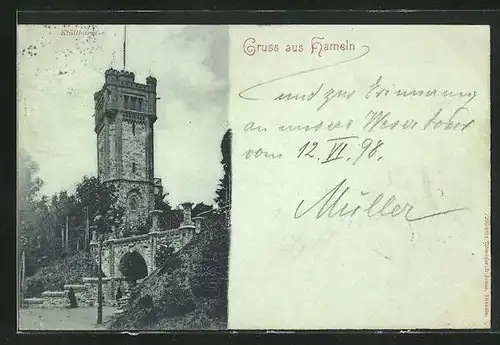 Klütthurm
Gruss aus Hameln
und zur Erinnerung
an unsere Wesertour
vom 12. VI. 98.
Müller